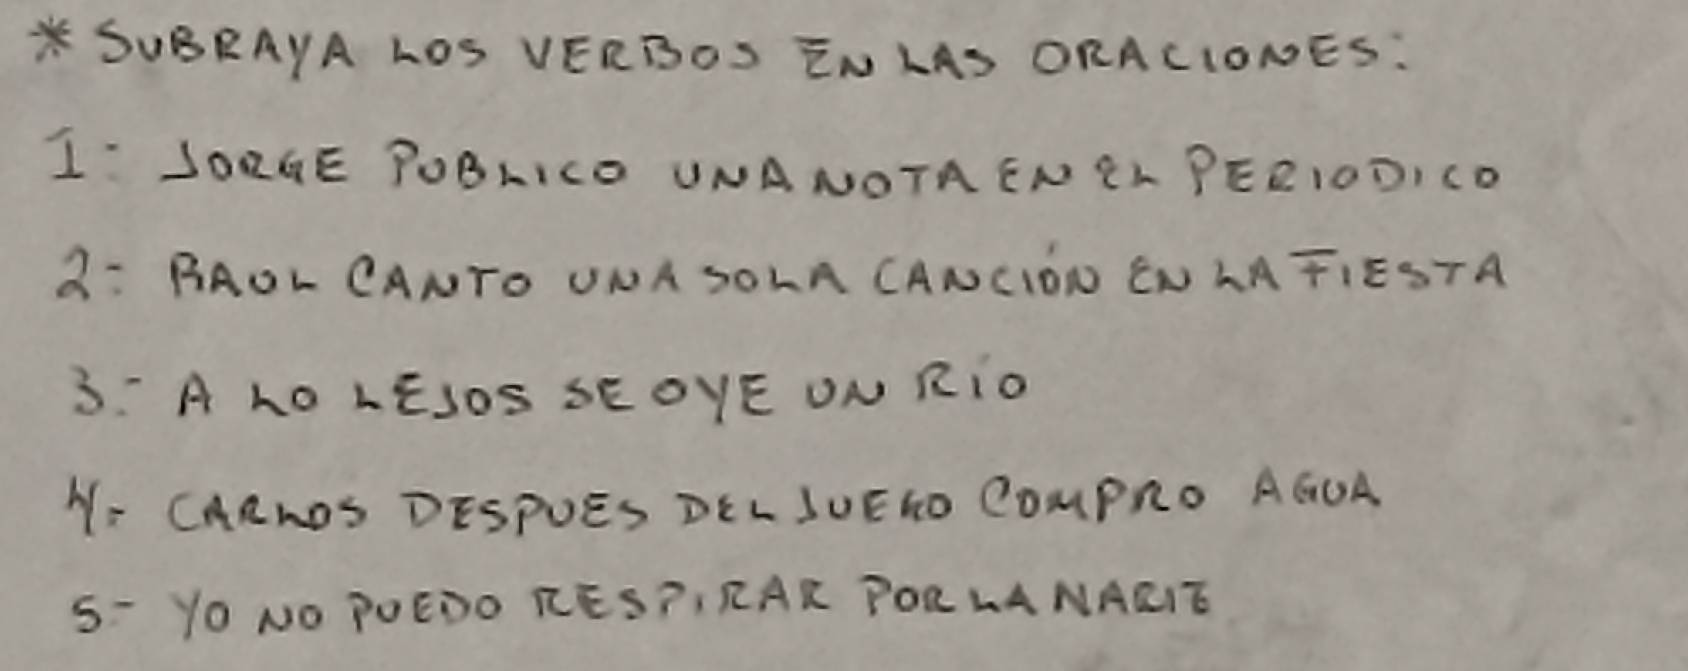 * SUBRAYA LOS VERBOS EN LAS ORACIONES:
1- JORGE PUBLICO UNA NOTA EN EL PERIODICO
2- RAUL CANTO UNA SOLA CANCIÓN EN LA FIESTA
3.- A LO LEJOS SE OYE UN RÍO
4.- CARLOS DESPUES DEL JUEGO COMPRO AGUA
5- YO NO PUEDO RESPIRAR POR LA NARIZ